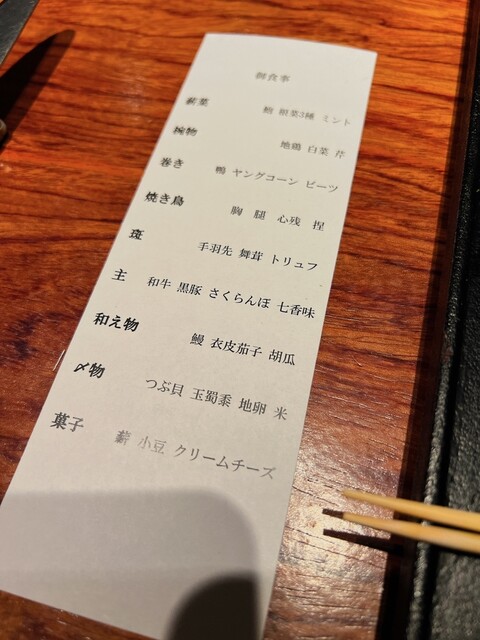 御食事
薪菜 鮑 根菜3種 ミント
椀物 地鶏 白菜 芹
巻き 鴨 ヤングコーン ビーツ
焼き鳥 胸 腿 心残 捏
斑 手羽先 舞茸 トリュフ
主 和牛 黒豚 さくらんぼ 七香味
和え物 鰻 衣皮茄子 胡瓜
〆物 つぶ貝 玉蜀黍 地卵 米
菓子 薪 小豆 クリームチーズ